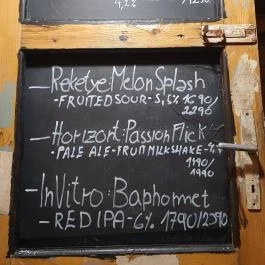 4,2%
— Reketye: Melon Splash
- FRUITED SOUR - 5,5% 1690/
2290
— Horizont: Passion Flick
- PALE ALE - FRUIT MILKSHAKE - 4,4
1490/
1990
— InVitro: Baphomet
- RED IPA - 6% 1790/2390